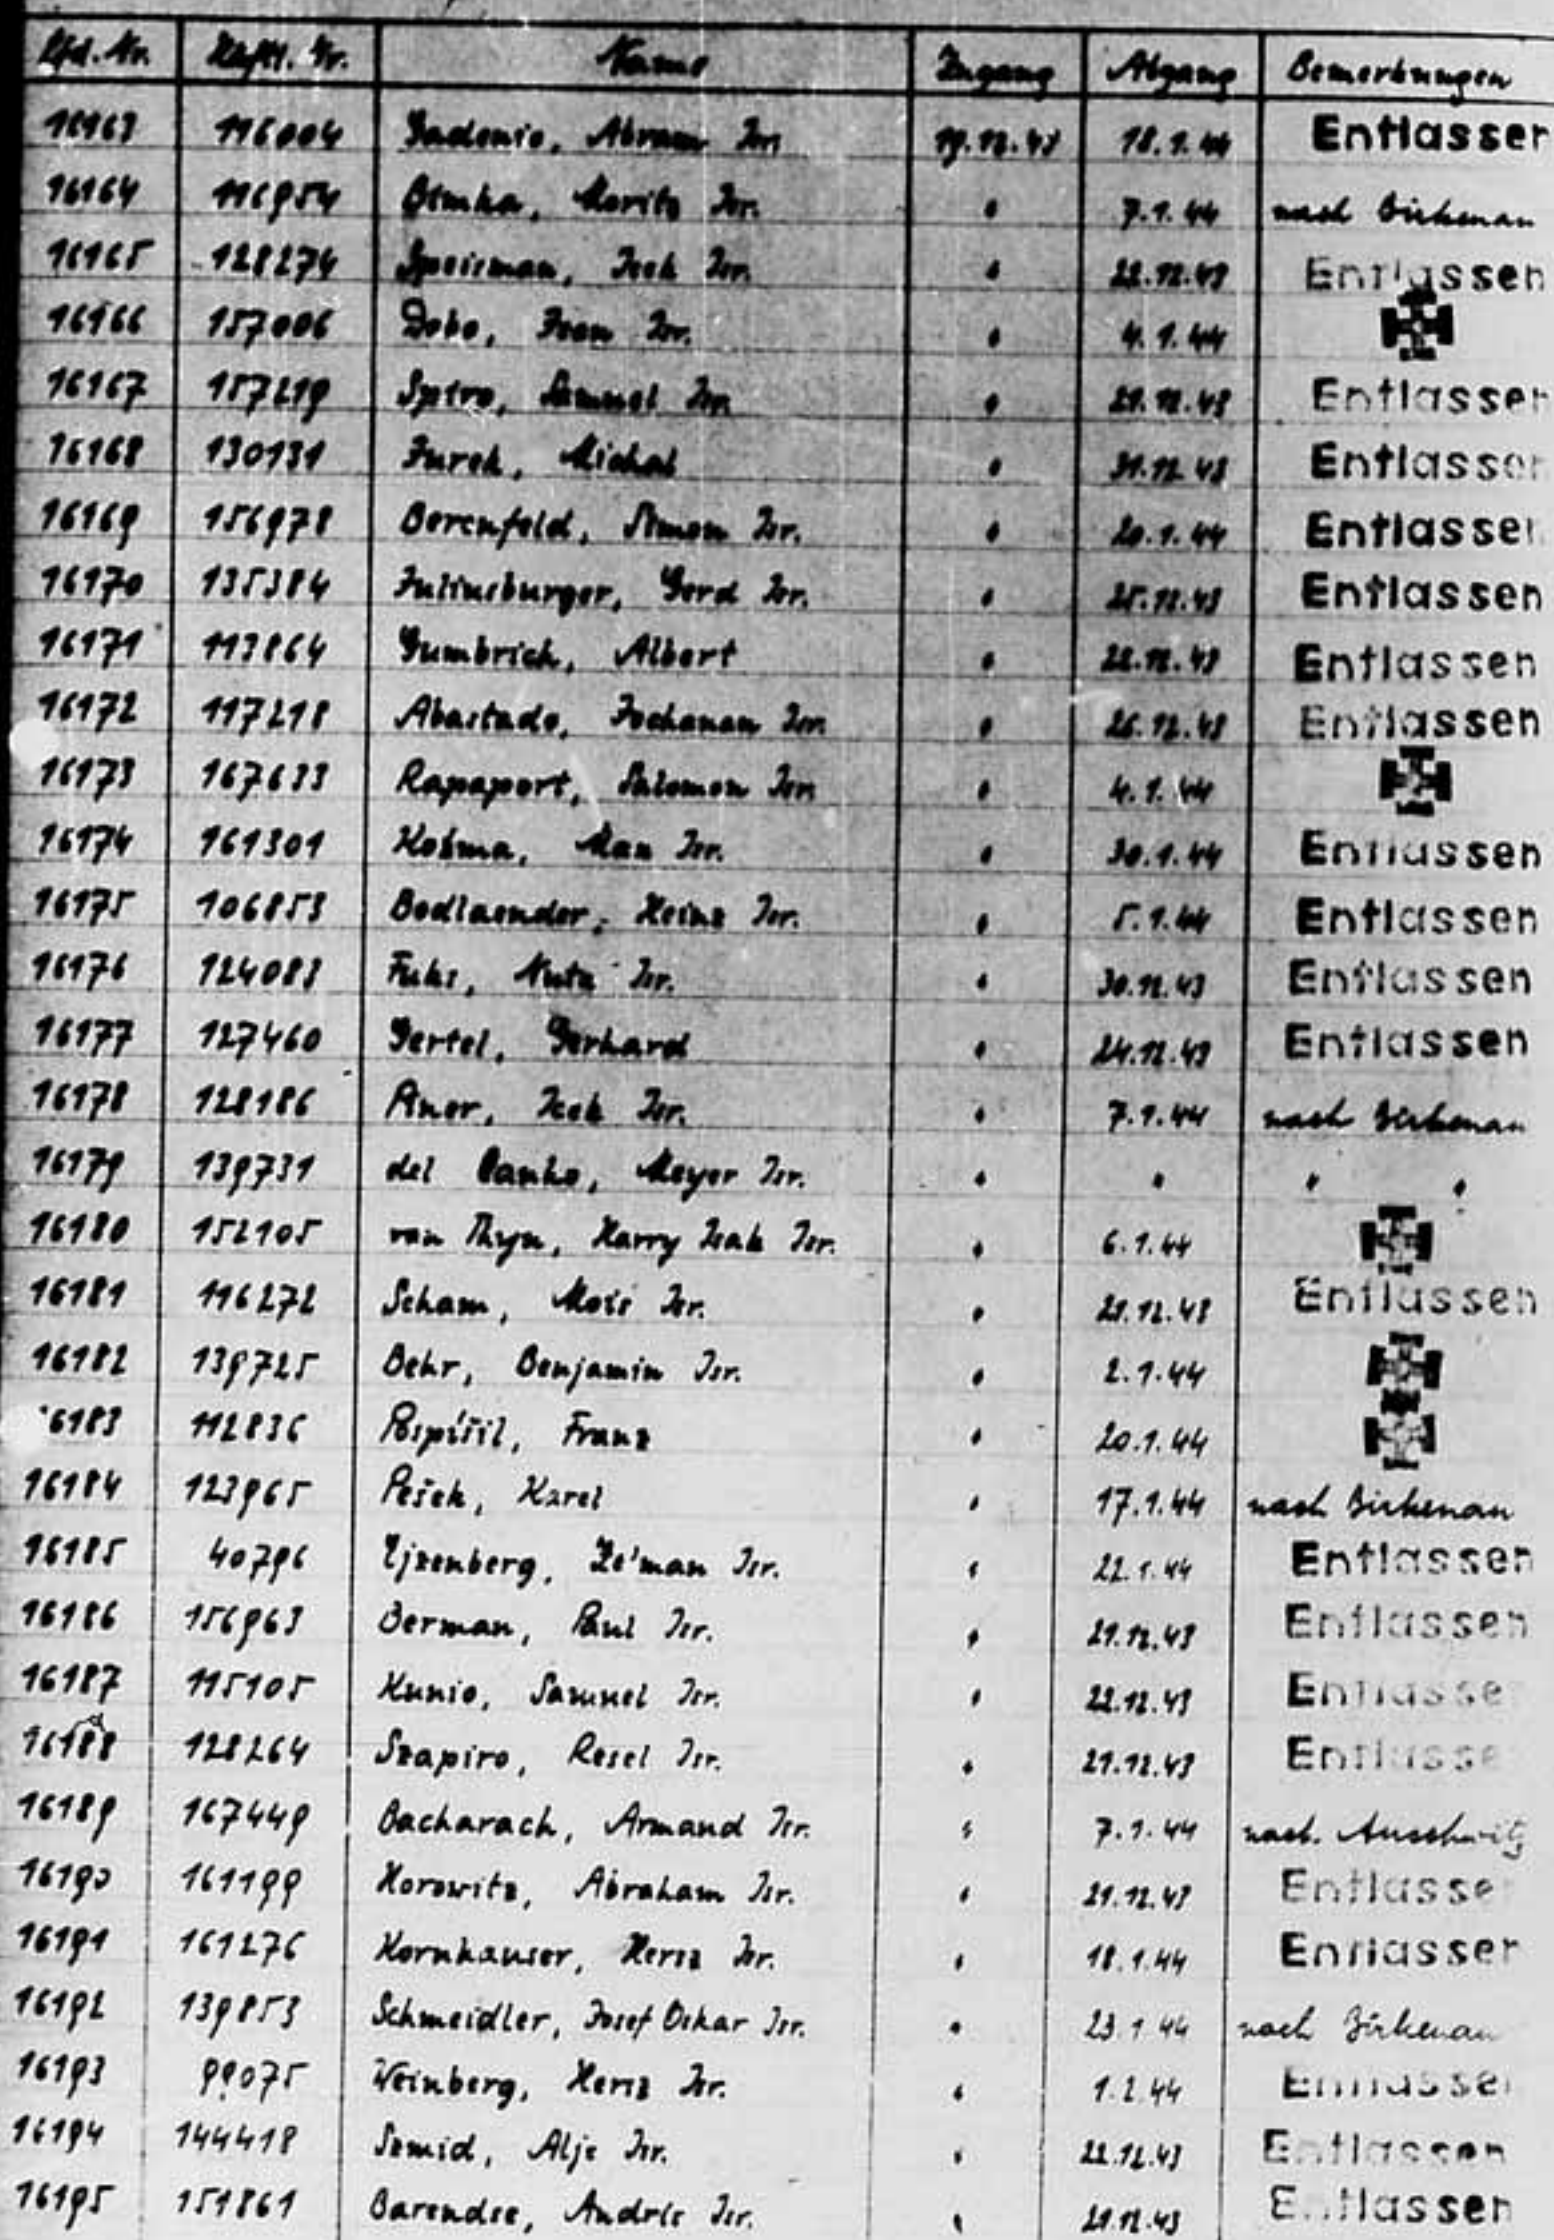 Lfd. Nr. Häftl. Nr. Name Zugang Abgang Bemerkungen
16163 116004 Abram Isr. 19.12.43 18.1.44 Entlassen
16164 116954 Moritz Isr. " 7.1.44 nach Birkenau
16165 128274 Speisman, Icek Isr. " 22.12.43 Entlassen
16166 157006 Isr. " 4.1.44
16167 157219 Spiro, Samuel Isr. " 21.12.43 Entlassen
16168 130131 Jurek, Michal " 31.12.43 Entlassen
16169 156978 Berenfeld, Simon Isr. " 20.1.44 Entlassen
16170 135384 Juliusburger, Gerd Isr. " 25.12.43 Entlassen
16171 113864 Gumbrich, Albert " 22.12.43 Entlassen
16172 117218 Abastado, Jochanan Isr. " 26.12.43 Entlassen
16173 167633 Rapaport, Salomon Isr. " 4.1.44
16174 161301 Isr. " 30.1.44 Entlassen
16175 106853 Bodlaender, Heinz Isr. " 5.1.44 Entlassen
16176 124083 Fuks, Nuta Isr. " 30.12.43 Entlassen
16177 127460 Gertel, Gerhard " 24.12.43 Entlassen
16178 128186 Icek Isr. " 7.1.44 nach Birkenau
16179 139731 del Canho, Meyer Isr. " " " "
16180 152105 van Thyn, Harry Isak Isr. " 6.1.44
16181 116272 Scham, Isr. " 21.12.43 Entlassen
16182 139725 Behr, Benjamin Isr. " 2.1.44
16183 112836 Pospíšil, Franz " 20.1.44
16184 123965 Pešek, Karel " 17.1.44 nach Birkenau
16185 40796 Ejzenberg, Isr. " 22.1.44 Entlassen
16186 156963 Berman, Paul Isr. " 21.12.43 Entlassen
16187 115105 Kunio, Samuel Isr. " 22.12.43 Entlassen
16188 128264 Szapiro, Resel Isr. " 21.12.43 Entlassen
16189 167449 Bacharach, Armand Isr. " 7.1.44 nach Auschwitz
16190 161199 Horowitz, Abraham Isr. " 21.12.43 Entlassen
16191 161276 Kornhauser, Hersz Isr. " 18.1.44 Entlassen
16192 139853 Schmeidler, Josef Oskar Isr. " 23.1.44 nach Birkenau
16193 99075 Weinberg, Hersz Isr. " 1.2.44 Entlassen
16194 144418 Szmid, Alje Isr. " 22.12.43 Entlassen
16195 151861 Barendse, Andries Isr. " 21.12.43 Entlassen